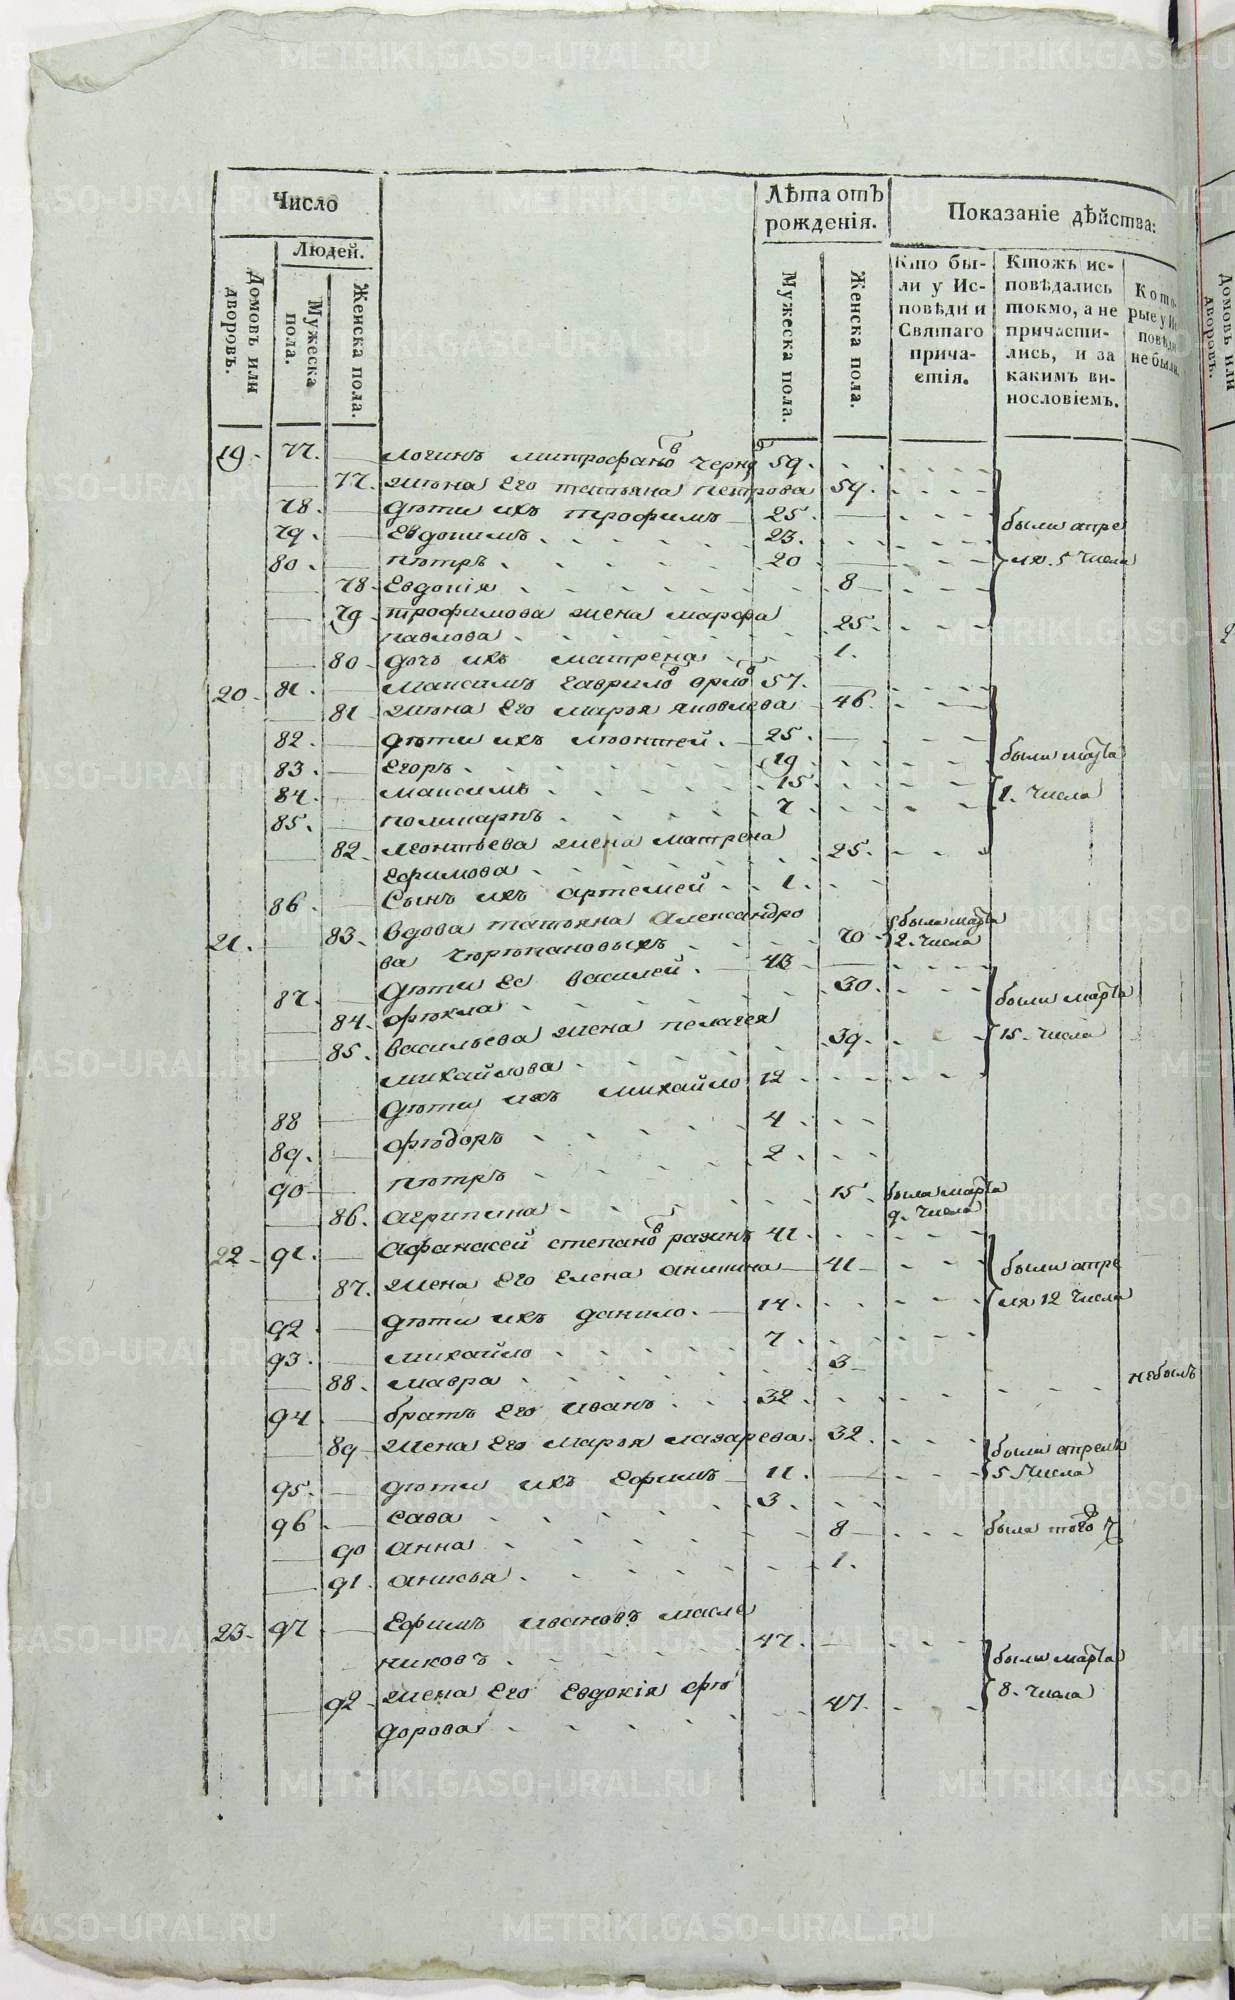 Число
Лѣта отъ рожденія.
Показаніе дѣйства:
Людей.
Домовъ или дворовъ.
Мужеска пола.
Женска пола.
Мужеска пола.
Женска пола.
Кто бы-
ли у Ис-
повѣди и
Святаго
прича-
стія.
Ктожъ ис-
повѣдались
токмо, а не
причасти-
лись, и за
какимъ ви-
нословіемъ.
Кото-
рые у Ис
повѣди
не были.
19. 77. Логинъ Митрофановъ 59.
77. жена Его татьяна петрова 54.
78. дѣти ихъ трофимъ 25.
79. Евдокимъ 23. были апре
80. пѣтръ 20 ля 5 числа
78. Евдокія 8
79. трофимова жена марфа
павлова 25.
80. дочь ихъ матрена 1.
20. 81. Максимъ гавриловъ орловъ 57.
81 жена Его марья яковлева 46.
82. дѣти ихъ лѣонтей. 25.
83. Егоръ 19 были марта
84. максимъ 15 1. числа
85. поликарпъ 7
82. леонтьева жена матрена
Ефимова 25.
86. Сынъ ихъ артемей 1.
21. 83. вдова татьяна Александро 70 была марта
ва 2. числа
87. дѣти Ее василей. 43
84. фѣкла 30. были марта
85. васильева жена пелагея
михайлова 39. 15. числа
88 дѣти ихъ михайло 12
89. фѣдоръ 4
90 пѣтръ 2
86. агрипина 15 была марта
9. числа
22 91. Афанасей степановъ разинъ 41
87. жена Его Елена аникина 41 были апре
92 дѣти ихъ данило. 14. ля 12 числа
93. михайло 7
88. мавра 3
94 братъ Его иванъ 32 небылъ
89 жена Его марья лазарева. 32. были апреля
95. дѣти ихъ Ефимъ 11. 5 числа
96 сава 3
90 анна 8 была того ч
91 анисья 1.
23. 97 Ефимъ ивановъ масле
никовъ 47. были марта
92 жена Его Евдокія фѣ 47. 8. числа
дорова
METRIKI.GASO-URAL.RU